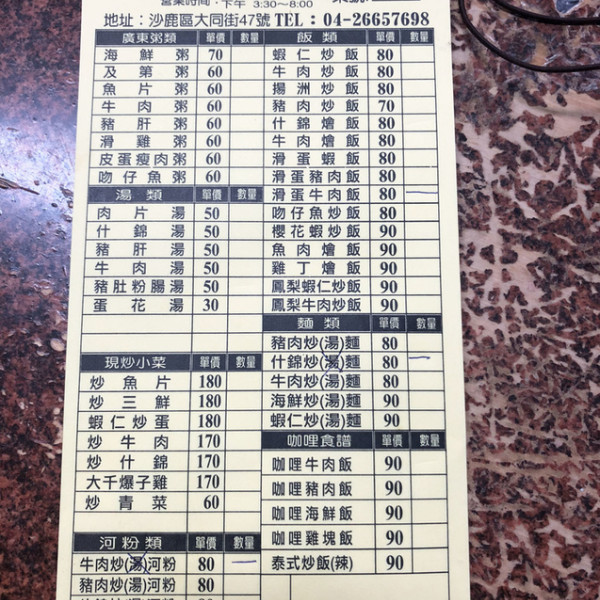 營業時間:下午 3:30～8:00
地址:沙鹿區大同街47號 TEL:04-26657698
廣東粥類 單價 數量
海鮮粥 70
及第粥 60
魚片粥 60
牛肉粥 60
豬肝粥 60
滑雞粥 60
皮蛋瘦肉粥 60
吻仔魚粥 60
湯類 單價 數量
肉片湯 50
什錦湯 50
豬肝湯 50
牛肉湯 50
豬肚粉腸湯 50
蛋花湯 30
現炒小菜 單價 數量
炒魚片 180
炒三鮮 180
蝦仁炒蛋 180
炒牛肉 170
炒什錦 170
大千爆子雞 170
炒青菜 60
河粉類 單價 數量
牛肉炒(湯)河粉 80
豬肉炒(湯)河粉 80
飯類 單價 數量
蝦仁炒飯 80
牛肉炒飯 80
揚洲炒飯 80
豬肉炒飯 70
什錦燴飯 80
牛肉燴飯 80
滑蛋蝦飯 80
滑蛋豬肉飯 80
滑蛋牛肉飯 80
吻仔魚炒飯 80
櫻花蝦炒飯 90
魚肉燴飯 90
雞丁燴飯 90
鳳梨蝦仁炒飯 90
鳳梨牛肉炒飯 90
麵類 單價 數量
豬肉炒(湯)麵 80
什錦炒(湯)麵 80
牛肉炒(湯)麵 80
海鮮炒(湯)麵 90
蝦仁炒(湯)麵 90
咖哩食譜 單價 數量
咖哩牛肉飯 90
咖哩豬肉飯 90
咖哩海鮮飯 90
咖哩雞塊飯 90
泰式炒飯(辣) 90